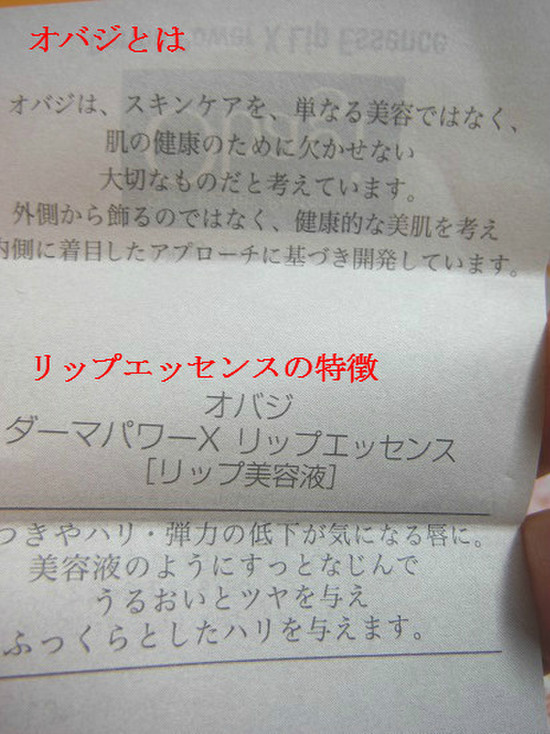 オバジとは
オバジは、スキンケアを、単なる美容ではなく、
肌の健康のために欠かせない
大切なものだと考えています。
外側から飾るのではなく、健康的な美肌を考え
内側に着目したアプローチに基づき開発しています。
リップエッセンスの特徴
オバジ
ダーマパワーX リップエッセンス
[リップ美容液]
つきやハリ・弾力の低下が気になる唇に。
美容液のようにすっとなじんで
うるおいとツヤを与え
ふっくらとしたハリを与えます。